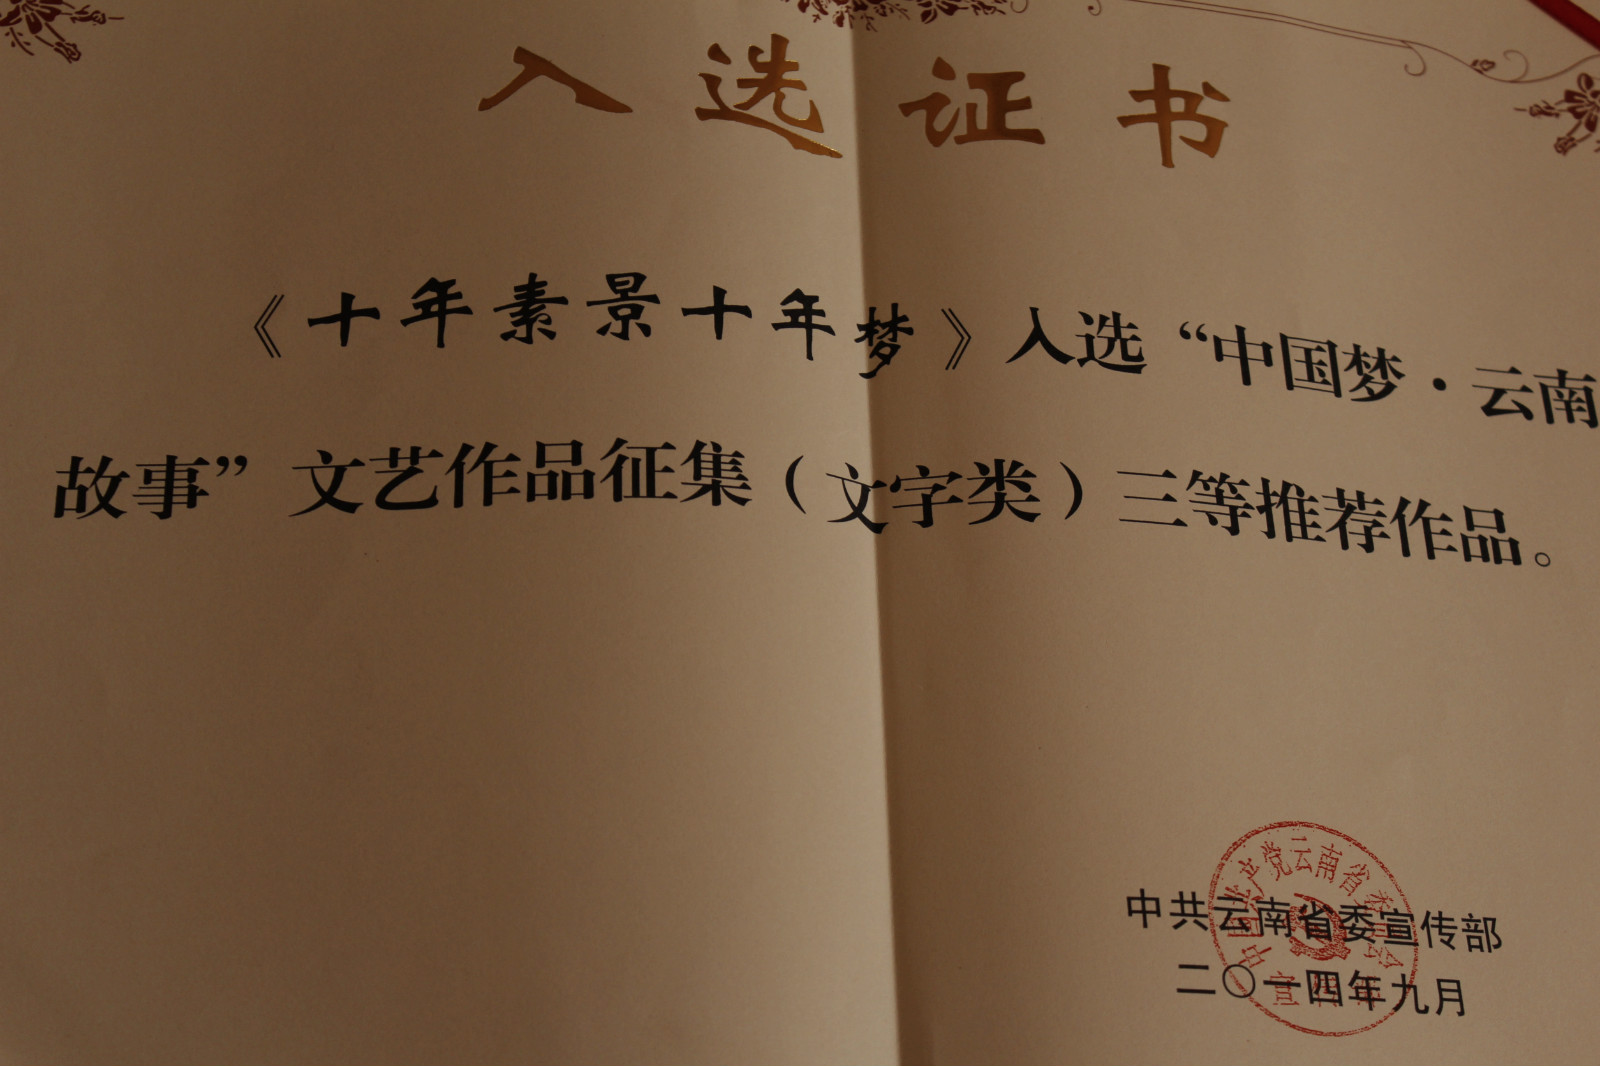 入选证书
《十年素景十年梦》入选“中国梦·云南
故事”文艺作品征集（文字类）三等推荐作品。
中国共产党云南省委员会
宣传部
中共云南省委宣传部
二〇一四年九月